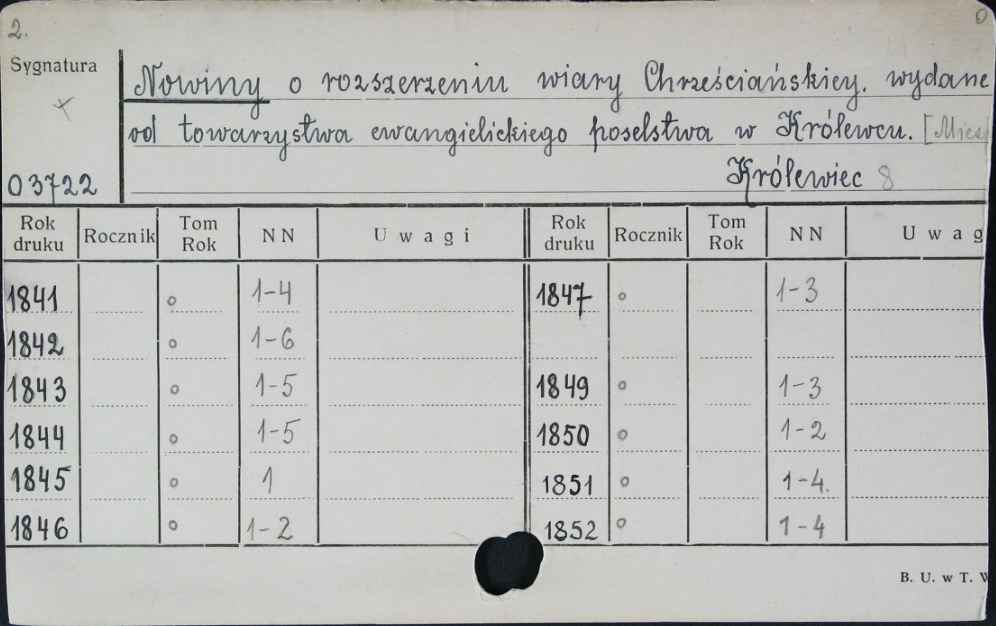 2.
Sygnatura
Nowiny o rozszerzeniu wiary Chrześciańskiey. wydane
od towarzystwa ewangielickiego poselstwa w Królewcu.
03722
Królewiec 8
Rok druku Rocznik Tom Rok NN Uwagi Rok druku Rocznik Tom Rok NN Uwag
1841 o 1-4 1847 o 1-3
1842 o 1-6
1843 o 1-5 1849 o 1-3
1844 o 1-5 1850 o 1-2
1845 o 1 1851 o 1-4.
1846 o 1-2 1852 o 1-4
B. U. w T.